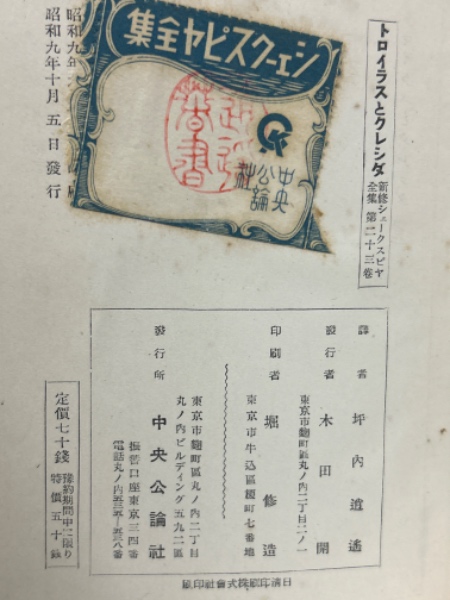 トロイラスとクレシダ
新修シェークスピヤ全集 第二十三巻
シェークスピヤ全集
中央公論社
昭和九年
昭和九年十月五日發行
譯者 坪內逍遙
東京市麴町區丸ノ內二丁目二ノ一
發行者 木田開
東京市牛込區榎町七番地
印刷者 堀修造
東京市麴町區丸ノ內二丁目
丸ノ內ビルディング五九二區
發行所 中央公論社
振替口座東京三四番
電話丸ノ內
定價七十錢
豫約期間中に限り
特價五十錢
日淸印刷株式會社印刷